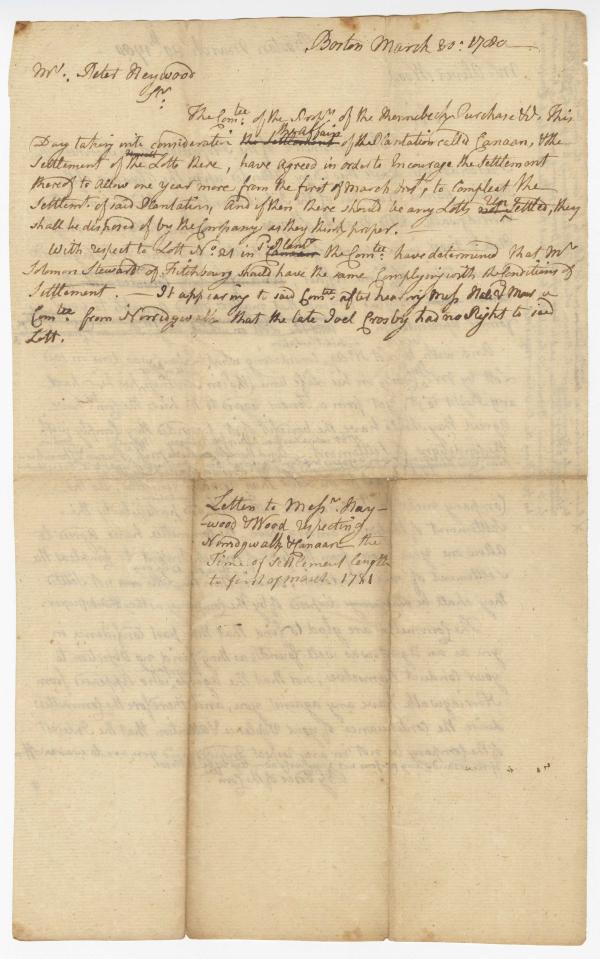 Boston March 30: 1780
Mr. Peter Heywood
Sr.
The Comtee of the Propn of the Kennebeck Purchase &c. This
the affair
Day taking into consideration the Settlement of the Plantation called Canaan, & the
Settlement of the Lotts there, have agreed in order to Encourage the Settlement
thereof to allow one year more from the first of March Inst, to compleat the
Settlemt. of said Plantation, and if then there should be any Lotts not Settled, they
shall be disposed of by the Company as they think proper.
With respect to Lott No. 21 in Canaan the Comtee have determined that Mr.
Solomon Steward of Fitchbourg should have the same Complying with the Conditions of
Settlement. — It appearing to said Comtee after hearing Messrs a
Comtee from Norridgwalk that the late Joel Crosby had no Right to said
Lott.
Letter to Messrs. Hay-
-wood & Wood respecting
Norridgwalk & Canaan the
Time of Settlement length
to first of March 1781